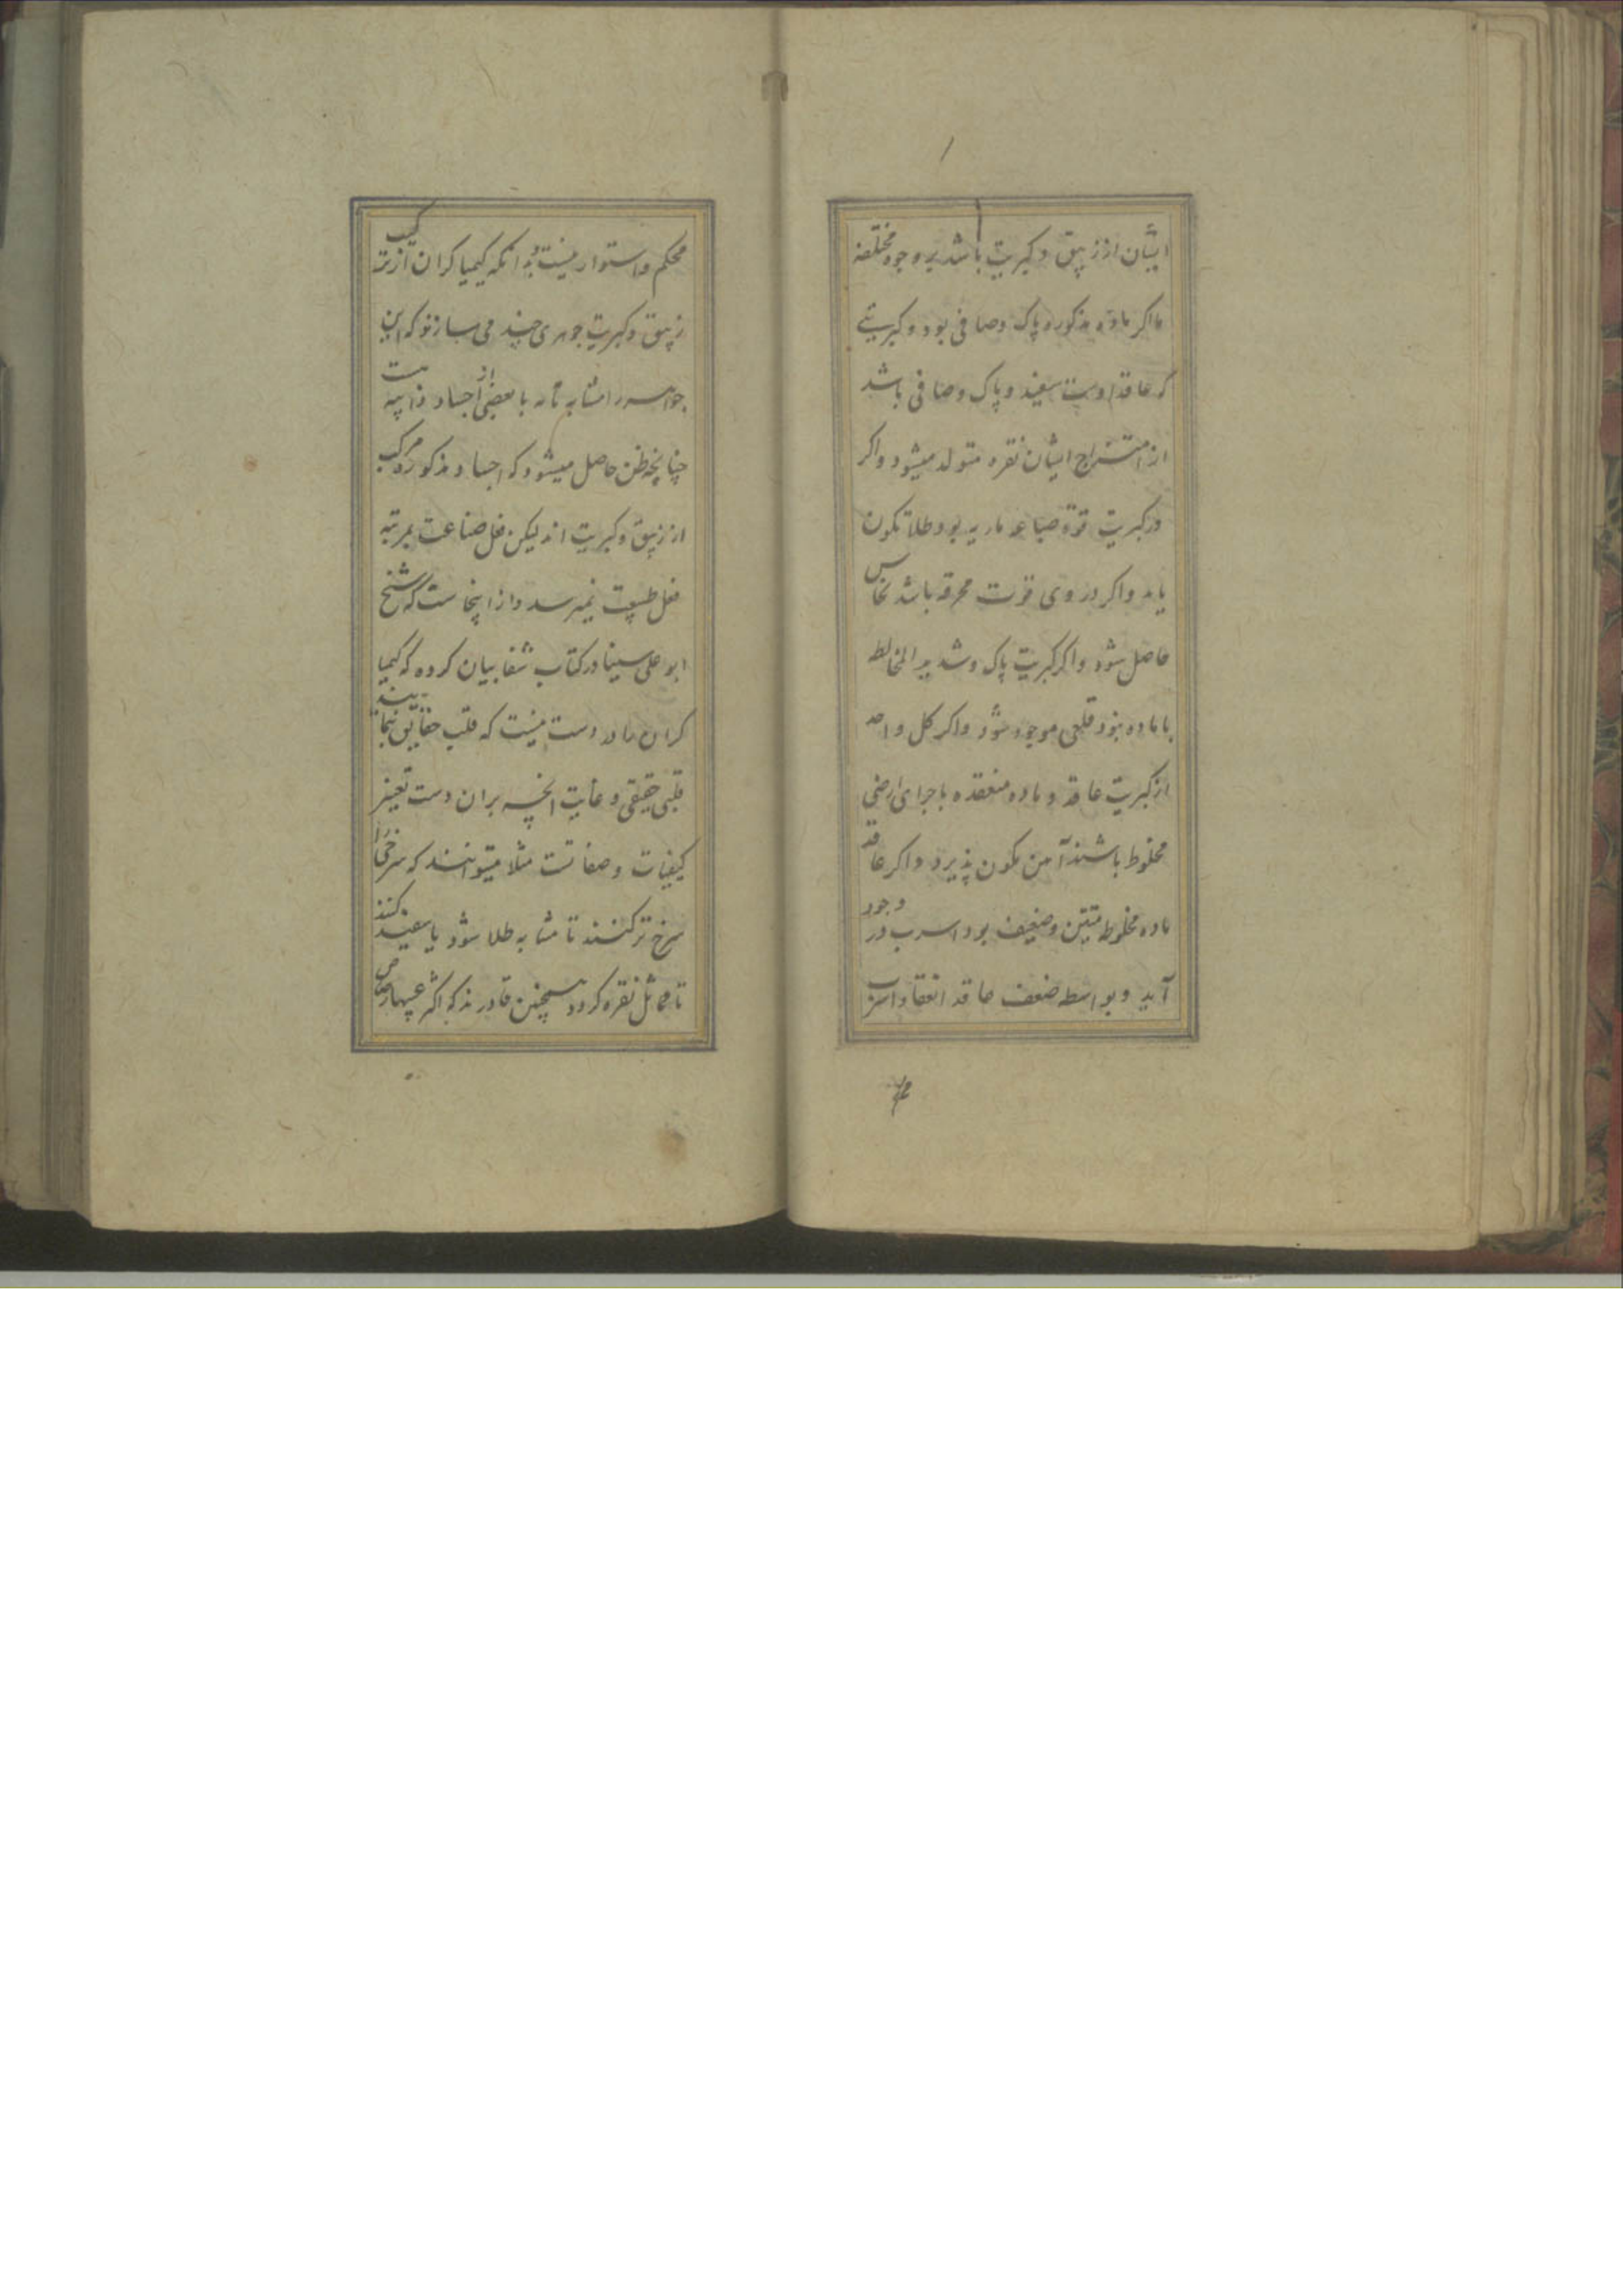 ایشان از زیبق و کبریت باشد بر وجوه مختلفه
ما اکر ماده مذکوره پاک و صافی بود و کبریتی
که عاقد اوست سفید و پاک و صافی باشد
از امتزاج ایشان نقره متولد میشود و اکر
در کبریت قوة صباغه ناریه بود طلا تکون
یابد و اکر در وی قوت محرقه باشد نحاس
حاصل شود و اکر کبریت پاک و شدید المخالطه
با ماده بنود قلعی موجود شود و اکر کل واحد
از کبریت عاقد و ماده منعقده باجزای ارضی
مخلوط باشند آهن تکون پذیرد و اکر عاقد
ماده مخلوط متین و ضعیف بود اسرب در وجود
آید و بواسطه ضعف عاقد انعقاد اسرب
محکم و استوار نیست بدانکه کیمیا کران از ترکیب
زیبق و کبریت جوهری چند می سازند که این
جواهر را مشابهت تامه با بعضی از اجساد ذائبه
چنانچه ظن حاصل میشود که اجساد مذکوره مرکب
از زیبق و کبریت اند لیکن فعل صناعت بمرتبه
فعل طبیعت نمیرسد و از اینجاست که شیخ
ابو علی سینا در کتاب شفا بیان کرده که کیمیا
کران را در دست نیست که قلب حقایق نمایند
قلبی حقیقی و غایت انچه بران دست تغییر
کیفیات و صفاتست مثلا میتوانند که سرخی را
سرخ تر کنند تا مشابه طلا شود یا سفید کنند
تا مماثل نقره کردد همچنین قادرند که اکثر عیبها رصاص